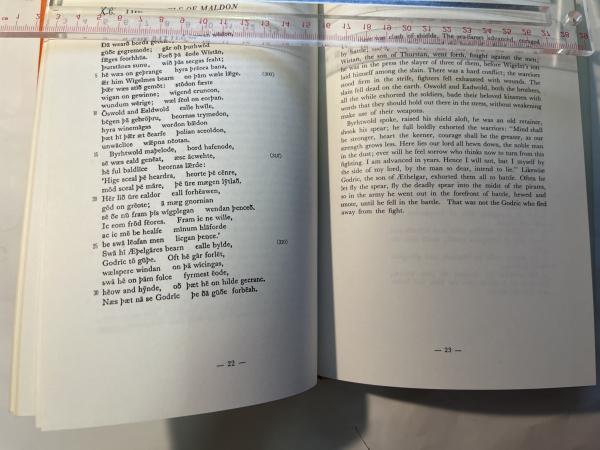 OF MALDON
Ðā wearð borda gebræc
gūðe gegremode;
Þurstānes sunu, wið þās secgas feaht;
5 hē wæs on geþrange hyra þrēora bana,
ǣr him Wīgelmes bearn on þām wæle lǣge. (300)
Þǣr wæs stīð gemōt: stōdon fæste
wigan on gewinne; wīgend cruncon,
wundum wērige; wæl fēol on eorþan.
10 Ōswold and Ealdwold ealle hwīle,
bēgen þā gebrōþru, beornas trymedon,
hyra winemāgas wordon bǣdon
þæt hī þǣr æt ðearfe þolian sceoldon,
unwāclīce wǣpna nēotan.
15 Byrhtwold maþelode, bord hafenode,
sē wæs eald genēat, æsc ācwehte,
hē ful baldlīce beornas lǣrde: 
'Hige sceal þē heardra, heorte þē cēnre,
mōd sceal þē māre, þē ūre mægen lȳtlað.
20 Hēr līð ūre ealdor eall forhēawen,
gōd on grēote; ā mæg gnornian
sē ðe nū fram þīs wīgplegan wendan þenceð.
Ic eom frōd fēores. Fram ic ne wille,
ac ic mē be healfe mīnum hlāforde
25 be swā lēofan men licgan þence.'
Swā hī Æþelgāres bearn ealle bylde,
Godrīc tō gūþe. Oft hē gār forlēt,
wælspere windan on þā wīcingas,
swā hē on þām folce fyrmest ēode,
30 hēow and hȳnde, oð þæt hē on hilde gecranc.
Næs þæt nā se Godrīc þe ðā gūðe forbēah.
— 22 —
Wistan, the son of Thurstan, went forth, fought against the men;
he was in the press the slayer of three of them, before Wigelin's son
laid himself among the slain. There was a hard conflict; the warriors
stood firm in the strife, fighters fell exhausted with wounds. The
slain fell dead on the earth. Oswold and Eadwold, both the brothers,
all the while exhorted the soldiers, bade their beloved kinsmen with
words that they should hold out there in the stress, without weakening
make use of their weapons.
Byrhtwold spoke, raised his shield aloft, he was an old retainer,
shook his spear; he full boldly exhorted the warriors: "Mind shall
be stronger, heart the keener, courage shall be the greater, as our
strength grows less. Here lies our lord all hewn down, the noble man
in the dust; ever will he feel sorrow who thinks now to turn from this
fighting. I am advanced in years. Hence I will not, but I myself by
the side of my lord, by the man so dear, intend to lie." Likewise
Godric, the son of Æthelgar, exhorted them all to battle. Often he
let fly the spear, fly the deadly spear into the midst of the pirates,
so in the army he went out in the forefront of battle, hewed and
smote, until he fell in the battle. That was not the Godric who fled
away from the fight.
— 23 —